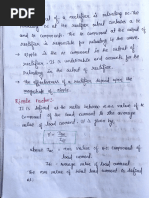 of a rectifier is pulsating dc. The
output of the rectifier contains a dc
and ac components. The ac component at the output of
rectifier is responsible for pulsating in the wave.
* Ripple is the ac component in the output of
rectifier. It is unwanted and accounts for the
pulsating in the output of rectifier.
* the effectiveness of a rectifier depend upon the
magnitude of ripple.
Ripple factor:
It is defined as the ratio between rms value of ac
component of the load current to the average
value of load current. It is given by,
γ = Iac / Idc
where Iac - rms value of ac component of
load current
Idc - Average value of load current.
The rms value of total load current is defined
as: